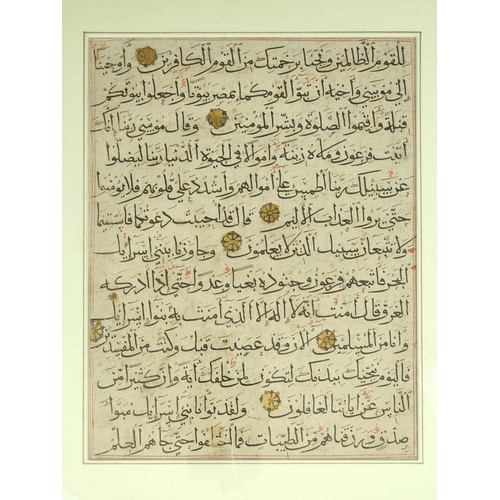 للقوم الظالمين ونجنا برحمتك من القوم الكافرين وأوحينا
إلى موسى وأخيه أن تبوآ لقومكما بمصر بيوتا واجعلوا بيوتكم
قبلة وأقيموا الصلوة وبشر المومنين وقال موسى ربنا إنك
آتيت فرعون وملاه زينة وأموالا في الحيوة الدنيا ربنا ليضلوا
عن سبيلك ربنا اطمس على أموالهم واشدد على قلوبهم فلا يؤمنوا
حتى يروا العذاب الأليم قال قد أجيبت دعوتكما فاستقيما
ولا تتبعان سبيل الذين لا يعلمون وجاوزنا ببني إسرايل
البحر فأتبعهم فرعون وجنوده بغيا وعدوا حتى إذا أدركه
الغرق قال آمنت أنه لا إله إلا الذي آمنت به بنوا إسرايل
وأنا من المسلمين آلآن وقد عصيت قبل وكنت من المفسدين
فاليوم ننجيك ببدنك لتكون لمن خلفك آية وإن كثيرا من
الناس عن آياتنا لغافلون ولقد بوأنا بني إسرايل مبوأ
صدق ورزقناهم من الطيبات فما اختلفوا حتى جاهم العلم